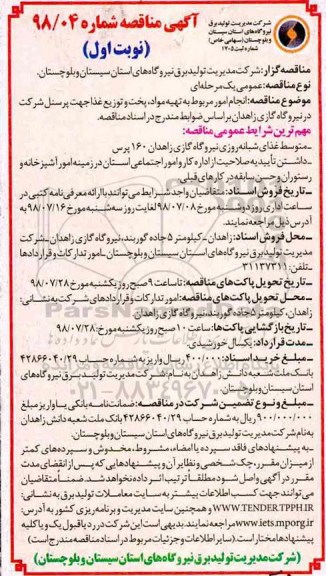 شرکت مدیریت تولید برق
نیروگاه‌های استان سیستان
و بلوچستان (سهامی خاص)
شماره ثبت ۱۲۰۵
آگهی مناقصه شماره ۹۸/۰۴
(نوبت اول)
مناقصه‌گزار: شرکت مدیریت تولید برق نیروگاه‌های استان سیستان و بلوچستان.
نوع مناقصه: عمومی یک مرحله‌ای
موضوع مناقصه: انجام امور مربوط به تهیه مواد، پخت و توزیع غذا جهت پرسنل شرکت
در نیروگاه گازی زاهدان بر اساس ضوابط مندرج در اسناد مناقصه.
مهم‌ترین شرایط عمومی مناقصه:
- متوسط غذای شبانه روزی نیروگاه گازی زاهدان ۱۶۰ پرس
- داشتن تأییدیه صلاحیت از اداره کار و امور اجتماعی استان در زمینه امور آشپزخانه و
رستوران و حسن سابقه در کارهای قبلی
- تاریخ فروش اسناد: متقاضیان واجد شرایط می‌توانند با ارائه معرفی‌نامه کتبی در
ساعات اداری روز دوشنبه مورخ ۹۸/۰۷/۰۸ لغایت روز سه شنبه مورخ ۹۸/۰۷/۱۶ به
آدرس ذیل مراجعه نمایند.
- محل فروش اسناد: زاهدان - کیلومتر ۵ جاده گوربند، نیروگاه گازی زاهدان - شرکت
مدیریت تولید برق نیروگاه‌های استان سیستان و بلوچستان - امور تدارکات و قراردادها
- تلفن: ۳۱۱۳۷۳۱۱
- تاریخ تحویل پاکت‌های مناقصه: تا ساعت ۹ صبح روز یکشنبه مورخ ۹۸/۰۷/۲۸
- محل تحویل پاکت‌های مناقصه: امور تدارکات و قراردادهای شرکت به نشانی:
زاهدان، کیلومتر ۵ جاده گوربند، نیروگاه گازی زاهدان.
- تاریخ بازگشایی پاکت‌ها: ساعت ۱۰ صبح روز یکشنبه مورخ: ۹۸/۰۷/۲۸
- مدت قرارداد: یکسال خورشیدی.
- مبلغ خرید اسناد: ۴۰۰/۰۰۰ ریال واریز به شماره حساب ۴۲۸۶۶۰۴۰/۲۹
بانک ملت شعبه دانش زاهدان به نام شرکت مدیریت تولید برق نیروگاه‌های
استان سیستان و بلوچستان
- مبلغ و نوع تضمین شرکت در مناقصه: ضمانت‌نامه بانکی یا واریز مبلغ
۹۰۰/۰۰۰/۰۰۰ ریال به شماره حساب ۴۲۸۶۶۰۴۰/۲۹ بانک ملت شعبه دانش زاهدان
به نام شرکت مدیریت تولید برق نیروگاه‌های استان سیستان و بلوچستان.
- به پیشنهادهای فاقد سپرده یا امضاء، مشروط، مخدوش و سپرده‌های کمتر
از میزان مقرر، چک شخصی و نظایر آن و پیشنهادهایی که پس از انقضای مدت
مقرر در آگهی واصل شود مطلقاً ترتیب اثر داده نخواهد شد. ضمناً متقاضیان
می‌توانند جهت کسب اطلاعات بیشتر به سایت معاملات تولید برق به نشانی:
WWW.TENDER.TPPH.IR و همچنین سایت مدیریت و برنامه ریزی کشور به آدرس:
www.iets.mporg.ir مراجعه نمایند. بدیهی است این شرکت در رد یا قبول یک و یا کلیه
پیشنهادها مختار است. (سایر اطلاعات و جزئیات مربوط در اسناد مناقصه مندرج است)
(شرکت مدیریت تولید برق نیروگاه‌های استان سیستان و بلوچستان)